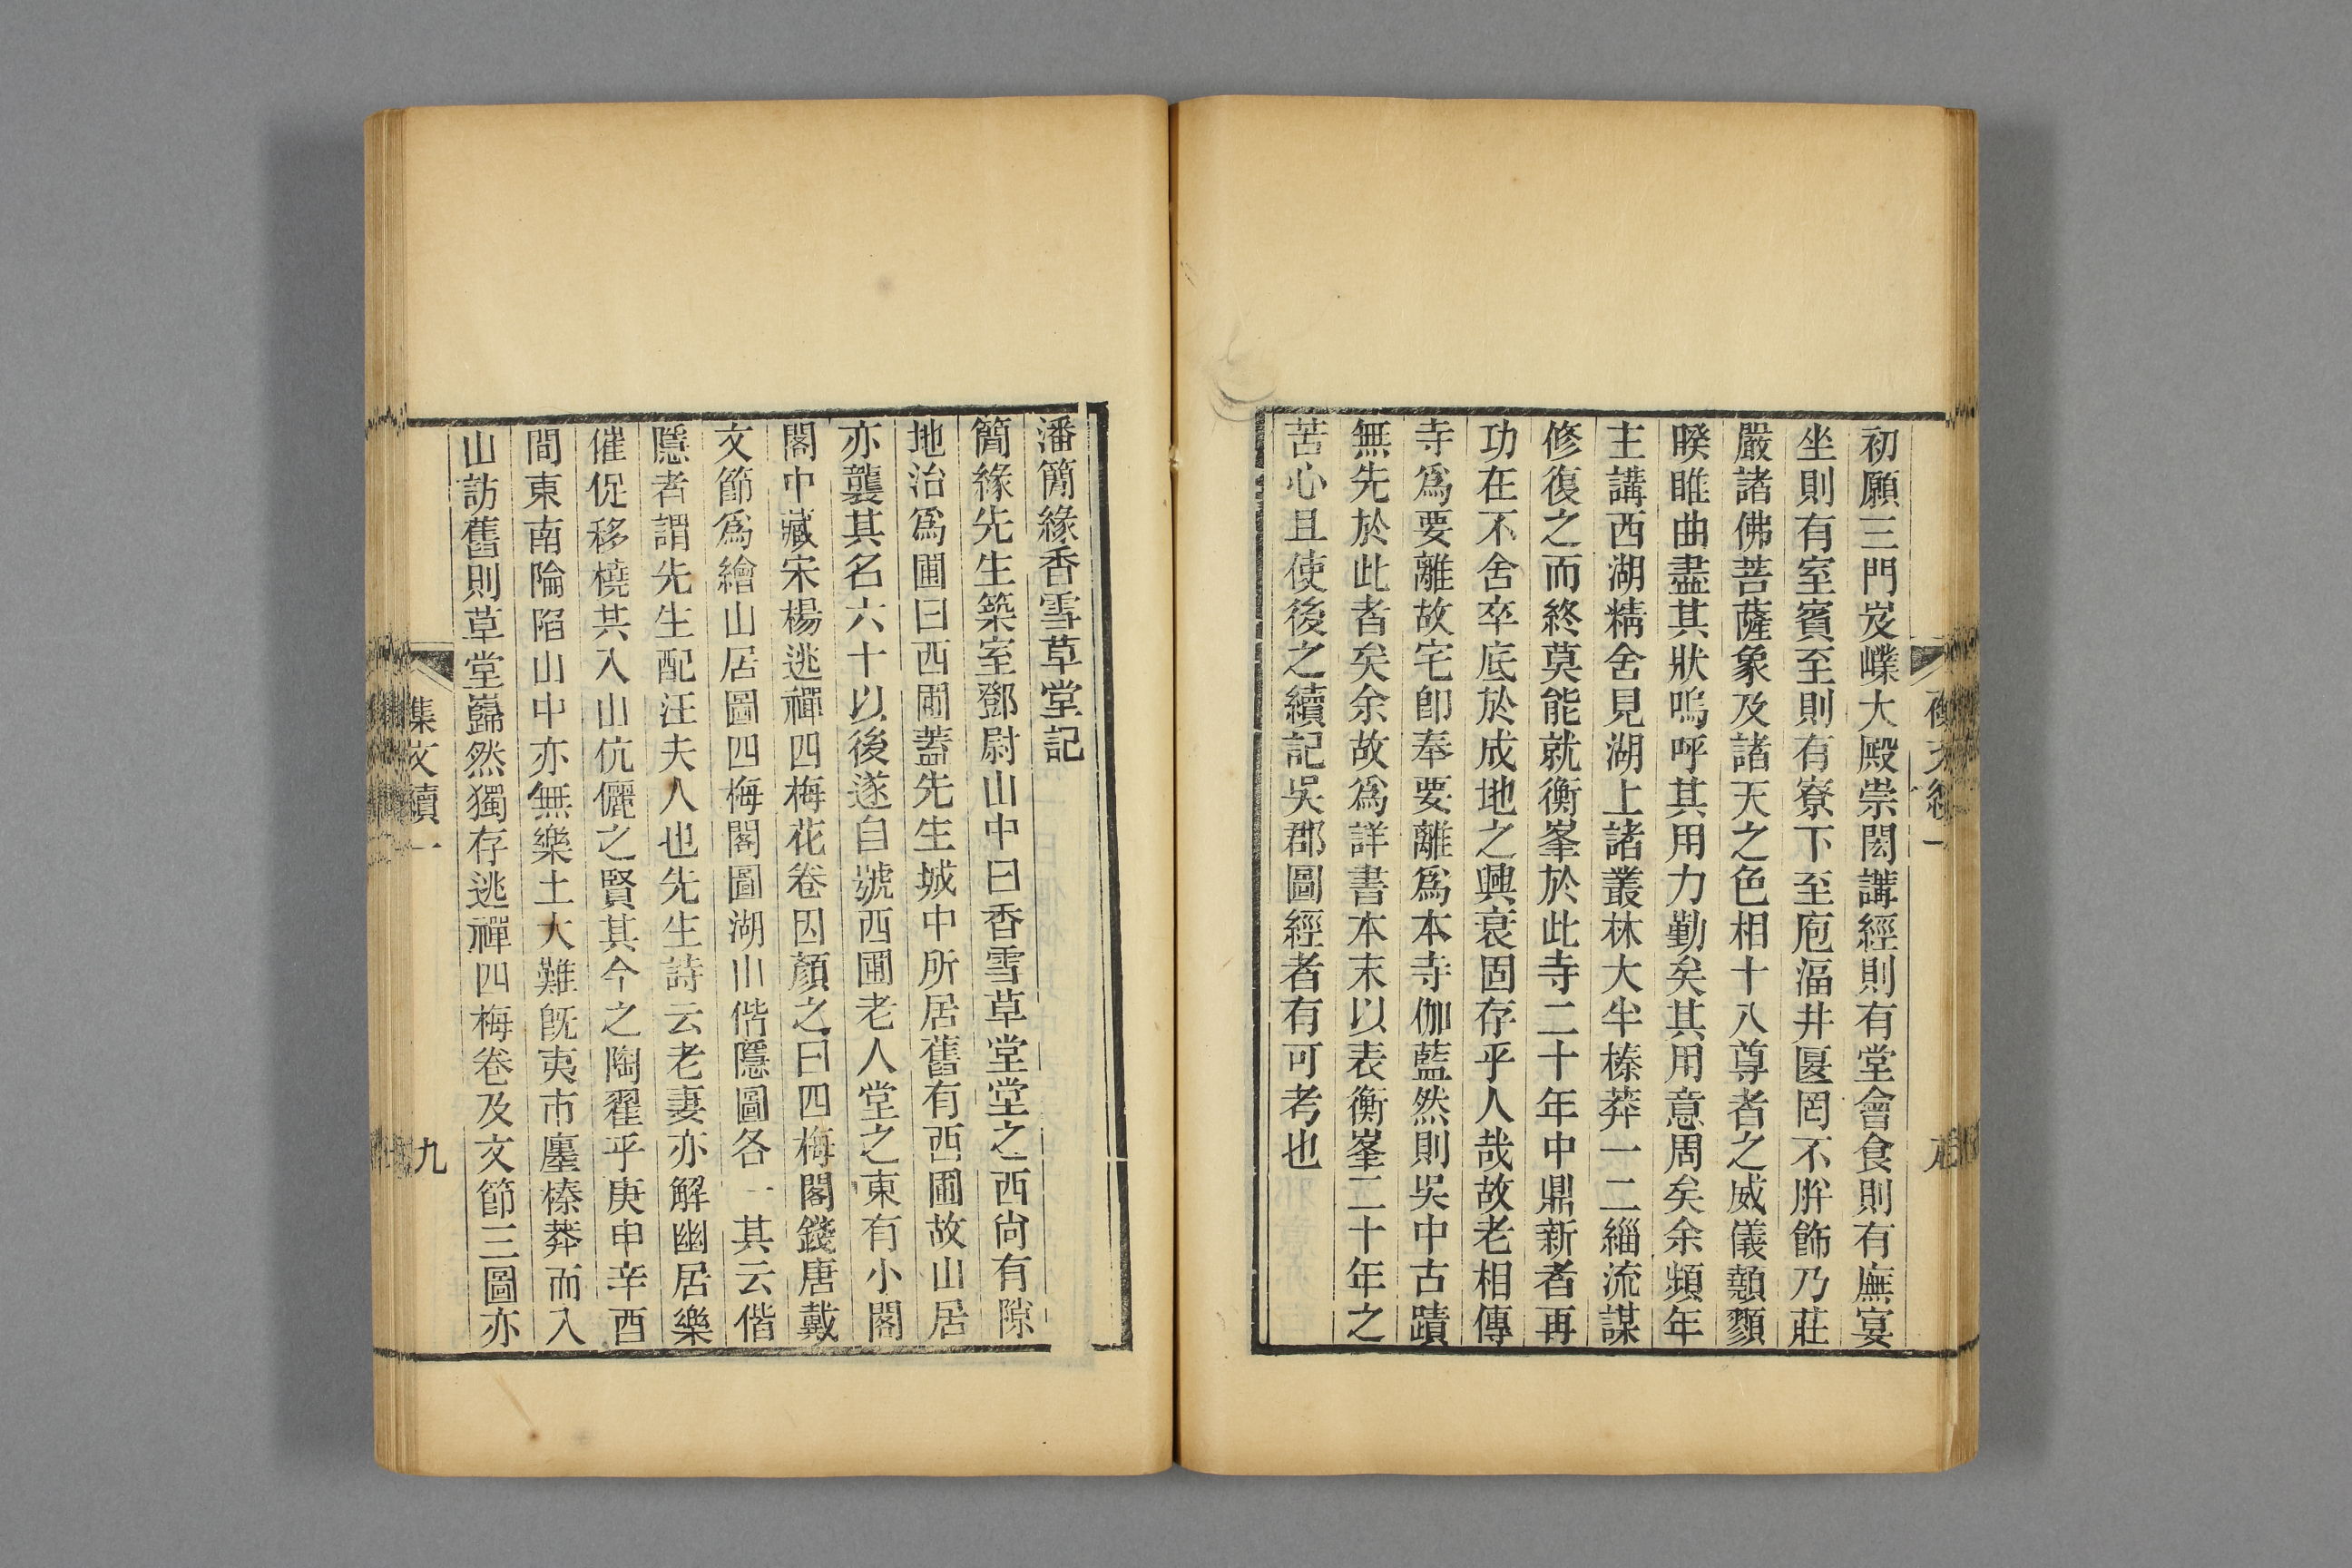 初願三門岌嶫大殿崇閎講經則有堂會食則有廡宴
坐則有室賓至則有寮下至庖湢井匽罔不腁飾乃莊
嚴諸佛菩薩象及諸天之色相十八尊者之威儀顤顟
睽睢曲盡其狀嗚呼其用力勤矣其用意周矣余頻年
主講西湖精舍見湖上諸叢林大半榛莽一二緇流謀
修復之而終莫能就衡峯於此寺二十年中鼎新者再
功在不舍卒底於成地之興衰固存乎人哉故老相傳
寺爲要離故宅卽奉要離爲本寺伽藍然則吳中古蹟
無先於此者矣余故爲詳書本末以表衡峯二十年之
苦心且使後之續記吳郡圖經者有可考也
潘簡緣香雪草堂記
簡緣先生築室鄧尉山中曰香雪草堂堂之西尙有隙
地治爲圃曰西圃蓋先生城中所居舊有西圃故山居
亦襲其名六十以後遂自號西圃老人堂之東有小閣
閣中藏宋楊逃禪四梅花卷因顏之曰四梅閣錢唐戴
文節爲繪山居圖四梅閣圖湖山偕隱圖各一其云偕
隱者謂先生配汪夫人也先生詩云老妻亦解幽居樂
催促移橈其入山伉儷之賢其今之陶翟乎庚申辛酉
間東南陯陷山中亦無樂土大難旣夷市廛榛莽而入
山訪舊則草堂巋然獨存逃禪四梅卷及文節三圖亦
集文續一
九